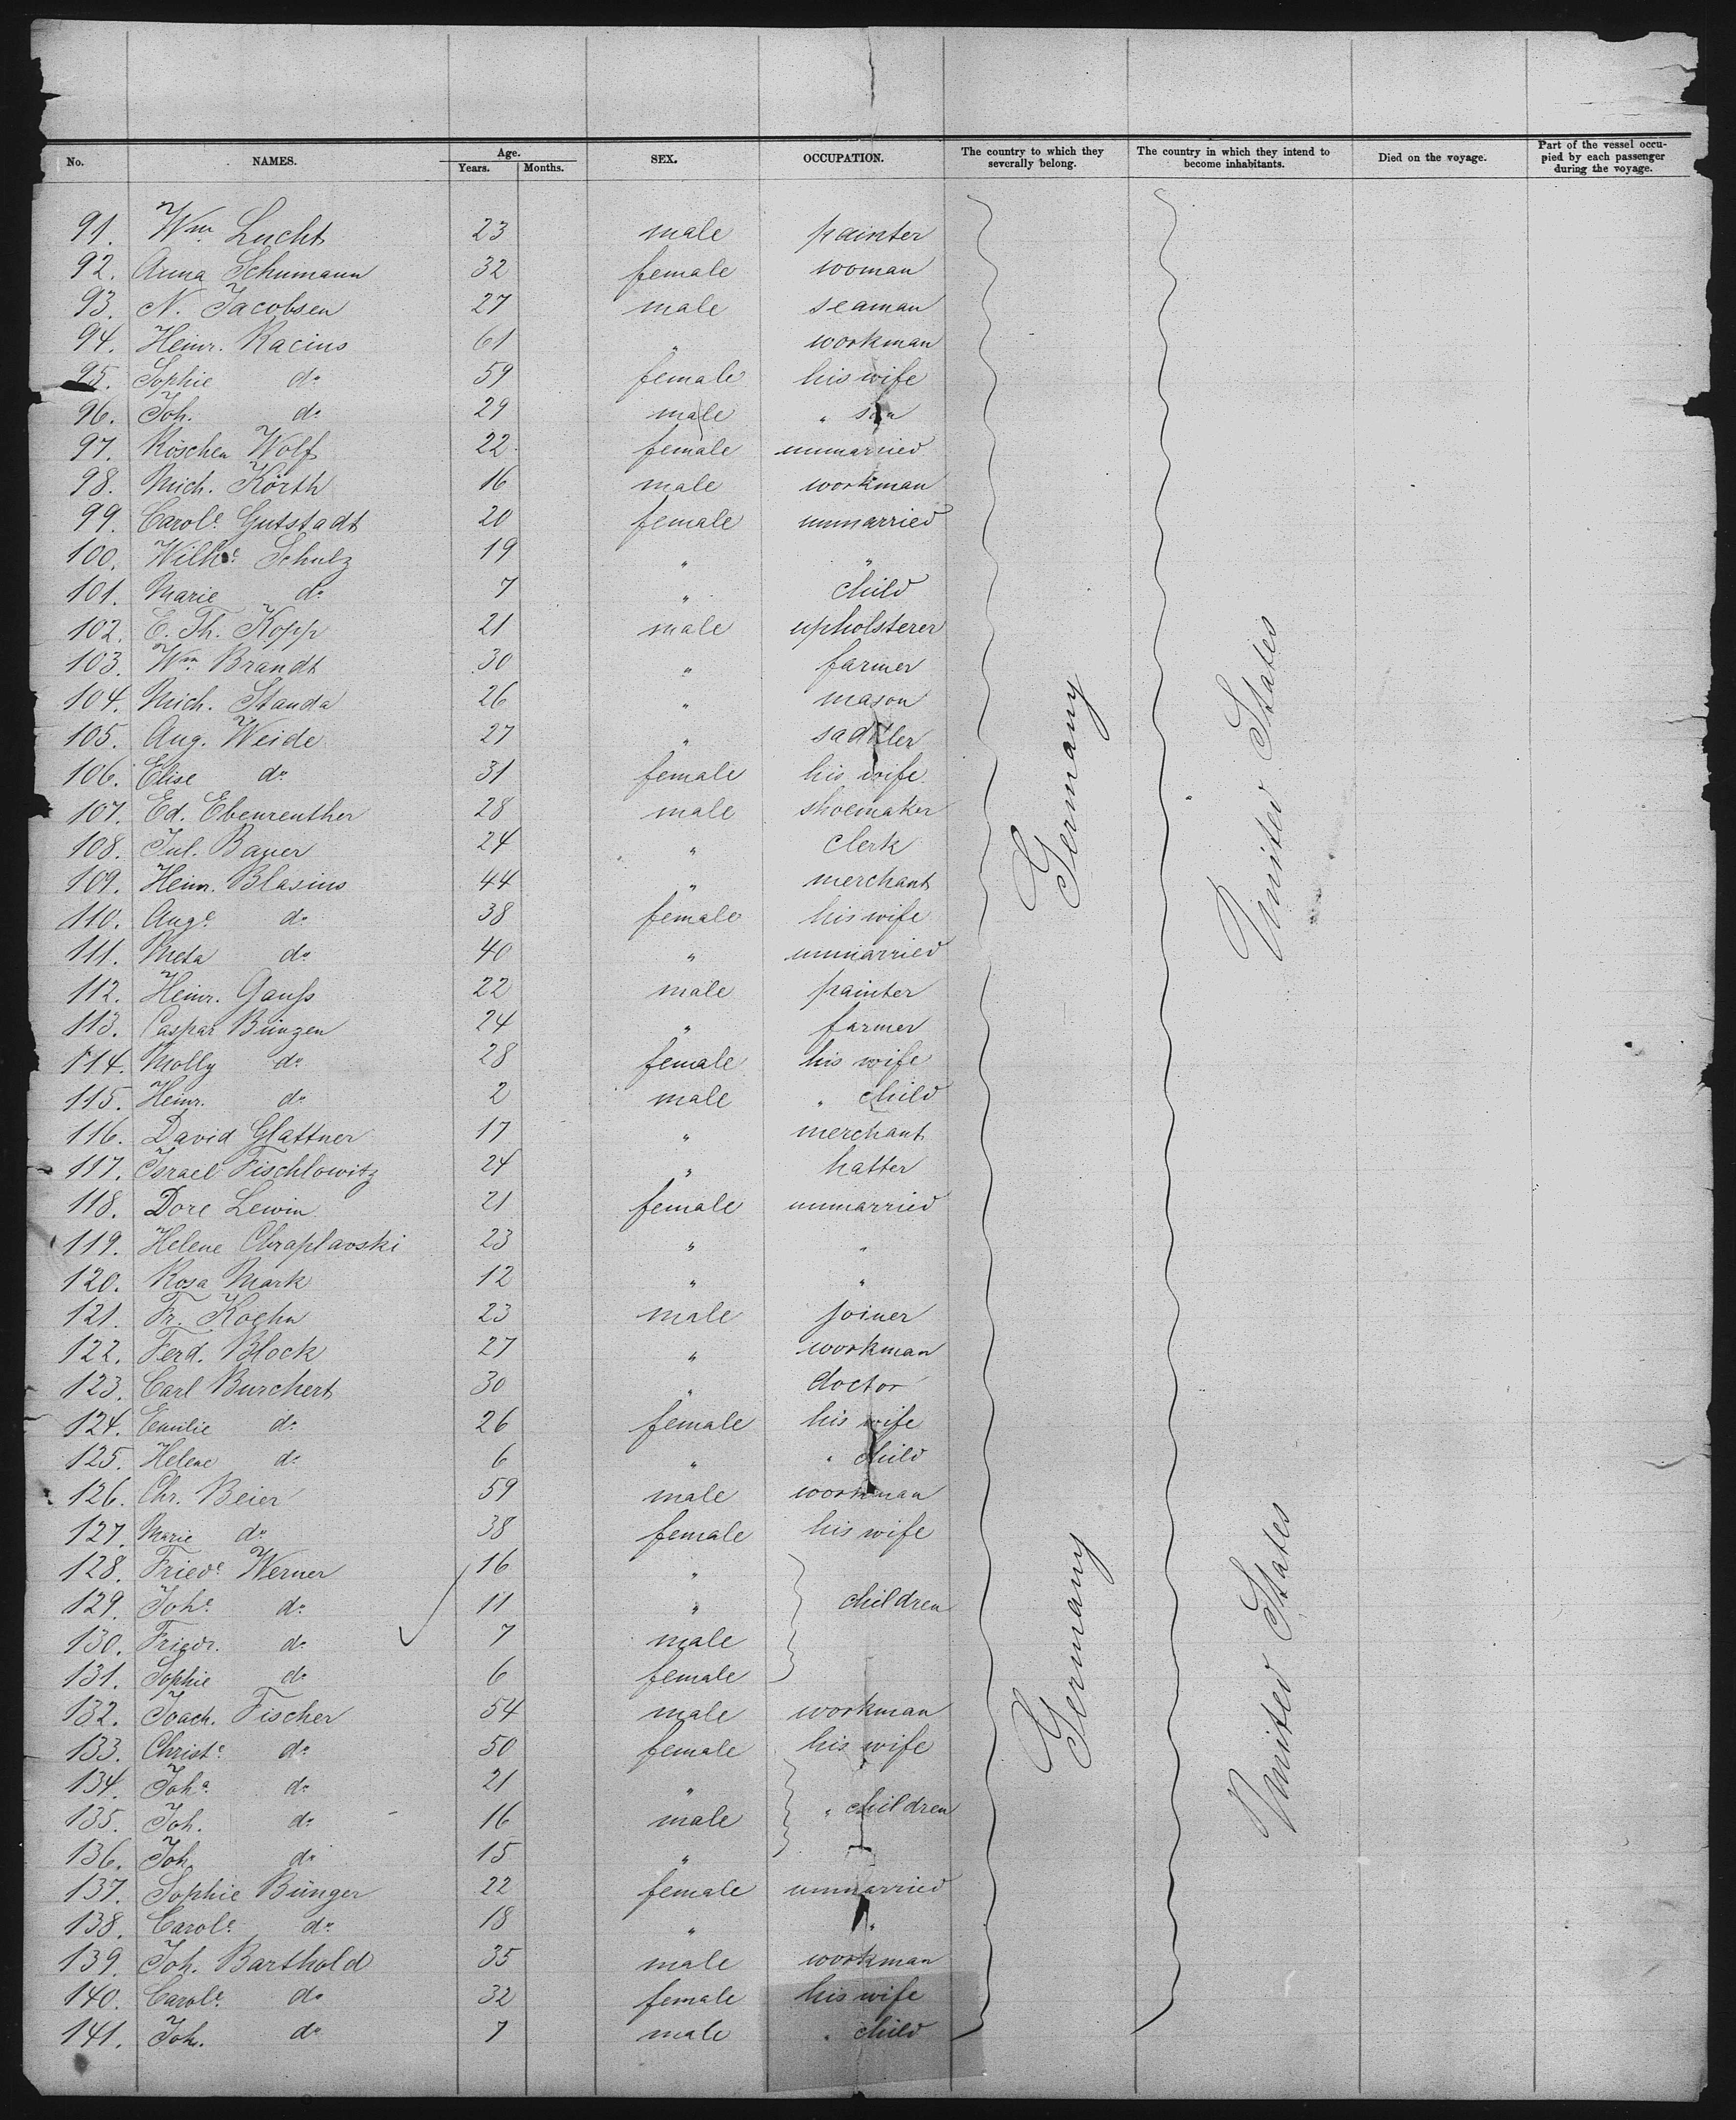 No. NAMES. Age. Years. Months. SEX. OCCUPATION. The country to which they severally belong. The country in which they intend to become inhabitants. Died on the voyage. Part of the vessel occupied by each passenger during the voyage.
91. Wm. Lucht 23 male painter
92. Anna Schumann 32 female woman
93. N. Jacobsen 27 male seaman
94. Heinr. Racius 61 " workman
95. Sophie do 59 female his wife
96. Joh. do 29 male " son
97. Röschen Wolf 22 female unmarried
98. Mich. Körth 16 male workman
99. Carole. Gutstadt 20 female unmarried
100. Wilhe. Schulz 19 " "
101. Marie do 7 " child
102. E. Th. Kopp 21 male upholsterer
103. Wm. Brandt 30 " farmer
104. Mich. Standa 26 " mason
105. Aug. Weide 27 " sadtler
106. Elise do 31 female his wife
107. Ed. Ebenreuther 28 male shoemaker
108. Jul. Bauer 24 " clerk
109. Heinr. Blasius 44 " merchant
110. Auge. do 38 female his wife
111. Meta do 40 " unmarried
112. Heinr. Gauß 22 male painter
113. Caspar Büngen 24 " farmer
114. Molly do 28 female his wife
115. Heinr. do 2 male " child
116. David Glattner 17 " merchant
117. Israel Fischlowitz 24 " hatter
118. Dore Lewin 21 female unmarried
119. Helene Chraplavski 23 " "
120. Rosa Mark 12 " "
121. Fr. Koehn 23 male joiner
122. Ferd. Block 27 " workman
123. Carl Burchert 30 " doctor
124. Emilie do 26 female his wife
125. Helene do 6 " " child
126. Chr. Beier 59 male workman
127. Marie do 38 female his wife
128. Friede. Werner 16 "
129. Johe. do 11 " children
130. Friedr. do 7 male
131. Sophie do 6 female
132. Joach. Fischer 54 male workman
133. Christe. do 50 female his wife
134. Joha. do 21 "
135. Joh. do 16 male " children
136. Joh. do 15 "
137. Sophie Bünger 22 female unmarried
138. Carole. do 18 " "
139. Joh. Barthold 35 male workman
140. Carole. do 32 female his wife
141. Joh. do 7 male " child
Germany
United States
Germany
United States